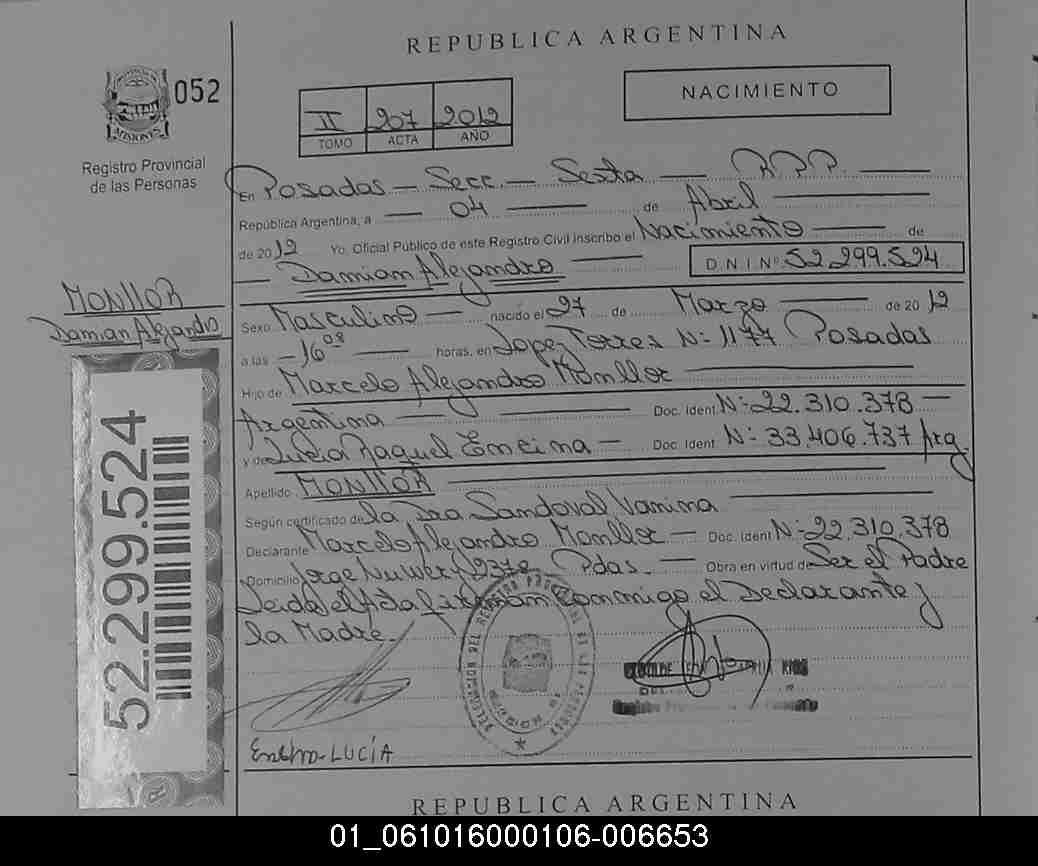 REPUBLICA ARGENTINA
052
NACIMIENTO
II 207 2012
TOMO ACTA AÑO
MISIONES
Registro Provincial
de las Personas
En Posadas — Secc. — Sexta — P.P.P. —
República Argentina, a — 04 — de Abril —
de 2012 Yo, Oficial Público de este Registro Civil inscribo el Nacimiento — de
— Damian Alejandro — D N I Nº 52.299.524
MONLLOR
Damian Alejandro
Sexo Masculino — nacido el 27 de Marzo — de 2012
a las —16 08 — horas, en Lopez Torres N- 1177 Posadas
Hijo de Marcelo Alejandro Monllor —
Argentina — — Doc. Ident. N- 22.310.378 —
y de Lucia Raquel Encina — Doc. Ident. N- 33.406.737 Arg.
Apellido MONLLOR —
Según certificado de la Dra Sandoval Vanina —
Declarante Marcelo Alejandro Monllor — Doc. Ident N- 22.310.378
Domicilio Jorge 2378 Pdas. — Obra en virtud de Ser el Padre
Leida el Acta firman conmigo el Declarante y
la Madre.
LUCÍA
52.299.524
REPUBLICA ARGENTINA
01_061016000106-006653